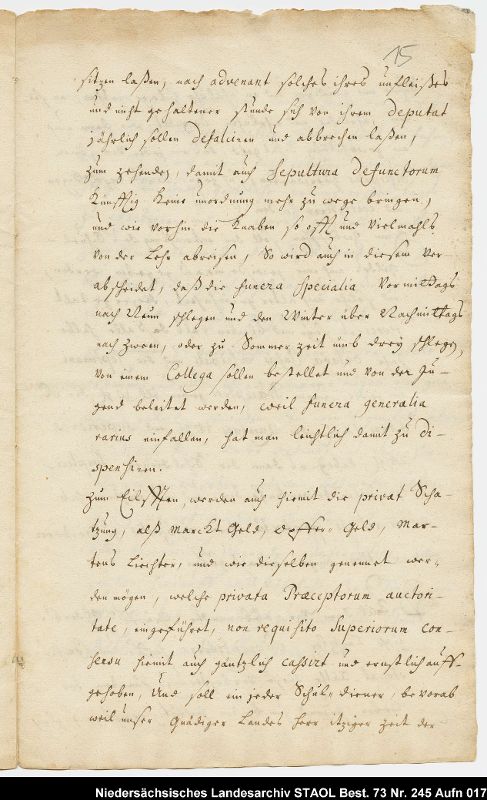 15
sitzen laßen, nach advenant solches ihres unfleißes
und nicht gehaltener stunde sich von ihrem deputat
jährlich sollen defalciren und abbrechen laßen,
zum zehenden, damit auch Sepultura Defunctorum
künfftig keine unordnung mehr zu wege bringen,
und wie vorhin die Knaben so offt und vielmahls
von der Lehr abreisen, So wird auch in diesem ver-
abscheidet, daß die funera specialia Vormittags
nach Neun schlegen und den Winter über Nachmittags
nach zween, oder zu Sommer zeit umb drey schlegen,
von einem Collega sollen bestellet und von der Ju-
gend beleitet werden, weil funera generalia
rarius einfallen, hat man leichtlich damit zu di-
spensiren.
Zum Eilfften, werden auch hiemit die privat Scha-
tzung, alß Marckt Geld, Opffer-Geld, Mar-
tens Liechter, und wie dieselben genennet wer-
den mögen, welche privata Præceptorum auctori-
tate, eingeführet, non requisito Superiorum con-
sensu hiemit auch gäntzlich cassirt und ernstlich auff-
gehoben, Und soll ein jeder Schul-diener, bevorab
weil unser Gnädiger Landes Herr itziger zeit der
Niedersächsisches Landesarchiv STAOL Best. 73 Nr. 245 Aufn 017